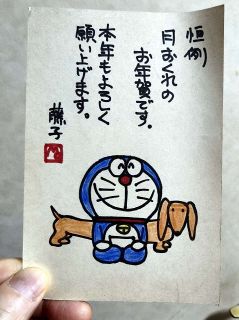 恒例
月おくれの
お年賀です。
本年もよろしく
願い上げます。
藤子